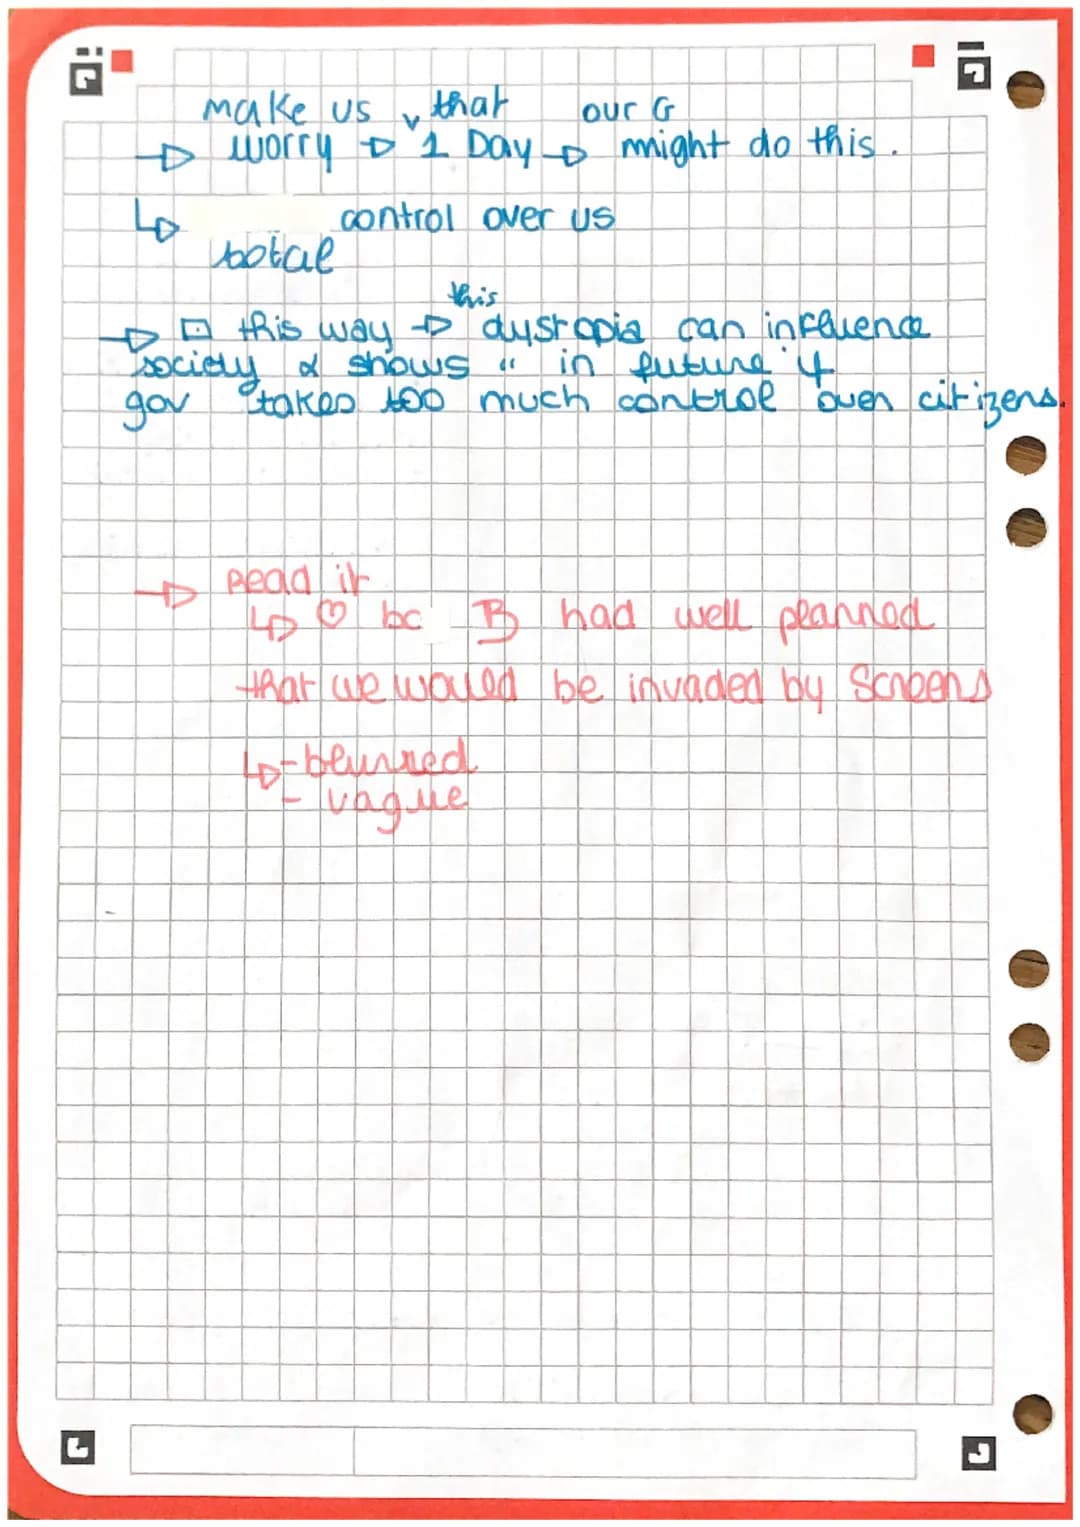 make us that our G
→ worry → 1 Day → might do this.
↳ control over us
total
this
→ ⊡ this way → dystopia can influence
society & shows " in future if
gov takes too much control over citizens.
→ Read it
↳ ♡ bc B had well planned
that we would be invaded by screens
↳ - blurred
- vague